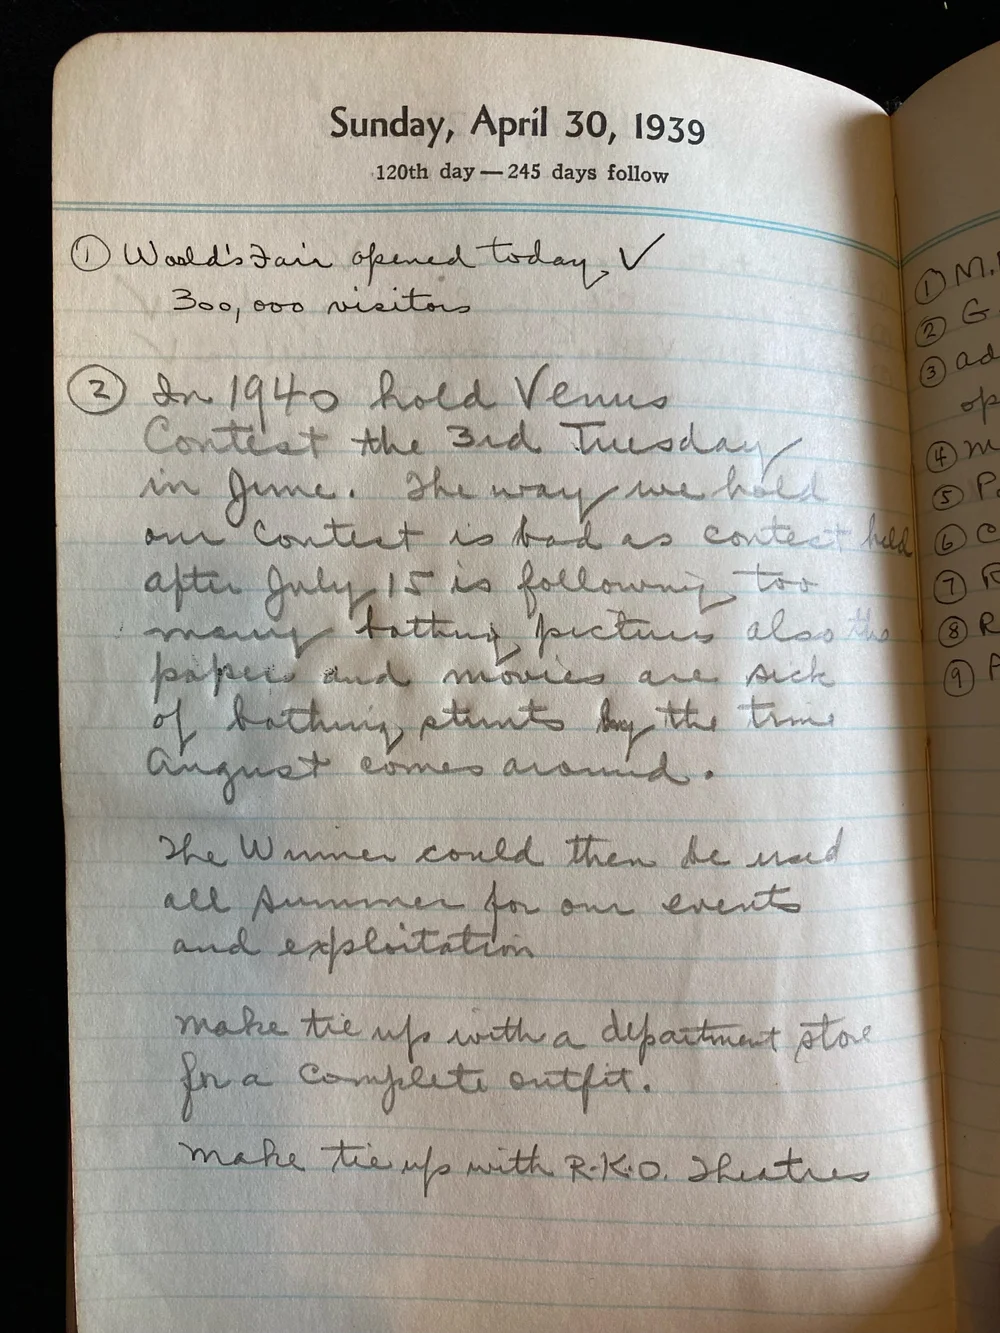 Sunday, April 30, 1939
120th day — 245 days follow
① World's Fair opened today, ✓
300,000 visitors
② In 1940 hold Venus
Contest the 3rd Tuesday
in June. The way we hold
our Contest is bad as contest held
after July 15 is following too
many bathing pictures also the
papers and movies are sick
of bathing stunts by the time
August comes around.
The Winner could then be used
all summer for our events
and exploitation
make tie up with a department store
for a Complete outfit.
make tie up with R.K.O. Theatres
① M.
② G.
③ ad
op
④ m
⑤ P
⑥ C
⑦ R
⑧ R
⑨